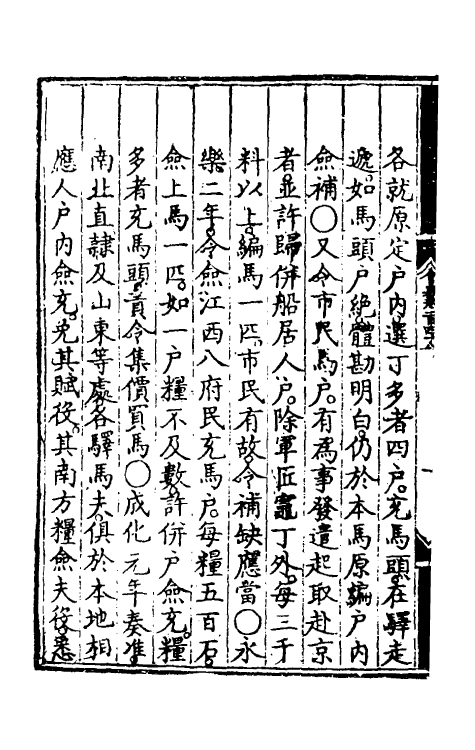 各就原定户内選丁多者四户。充馬頭。在驛走
遞。如馬頭户絶。體勘明白。仍於本馬原編户内
僉補○又令市民馬户。有為事發遣起取赴京
者。並許歸併船居人户。除軍匠竈丁外。毎三千
料以上。編馬一匹。市民有故。令補缺應當○永
樂二年。令僉江西八府民充馬户。每糧五百石。
僉上馬一匹。如一户糧不及數。許併户僉充。糧
多者充馬頭。責令集價買馬○成化元年奏准。
南北直隷及山東等處。各驛馬夫。俱於本地相
應人户内僉充。免其賦役。其南方糧僉夫役。悉